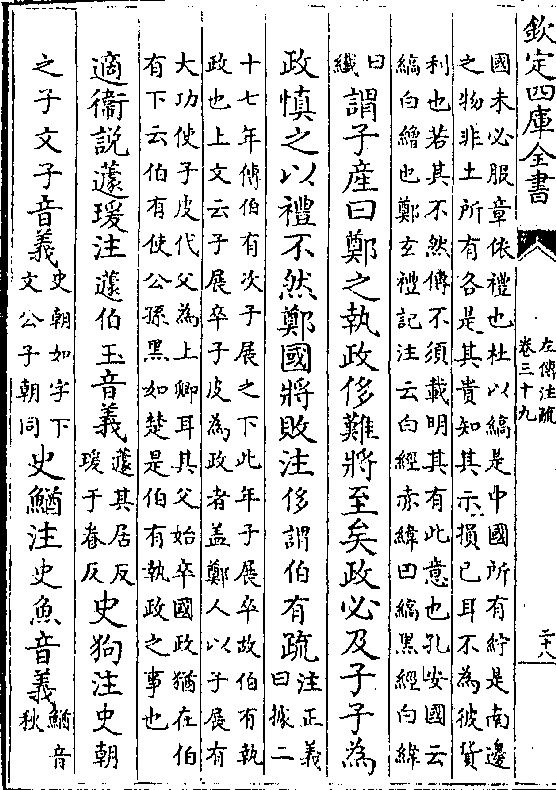 欽定四庫全書
左傳注疏
卷三十九
二十八
國未必服章依禮也杜以縞是中國所有紵是南邊
之物非土所有各是其貴知其示損已耳不為彼貨
利也若其不然傳不須載明其有此意也孔安國云
縞白繒也鄭玄禮記注云白經赤緯曰縞黑經白緯
曰
纎
謂子產曰鄭之執政侈難將至矣政必及子子為
政慎之以禮不然鄭國將敗注侈謂伯有疏
注正義
曰據二
十七年傳伯有次子展之下此年子展卒故伯有執
政也上文云子展卒子皮為政者盖鄭人以子展有
大功使子皮代父為上卿耳其父始卒國政猶在伯
有下云伯有使公孫黑如楚是伯有執政之事也
適衞說蘧瑗注蘧伯玉音義
蘧其居反
瑗于眷反
史狗注史朝
之子文子音義
史朝如字下
文公子朝同
史鰌注史魚音義
鰌音
秋